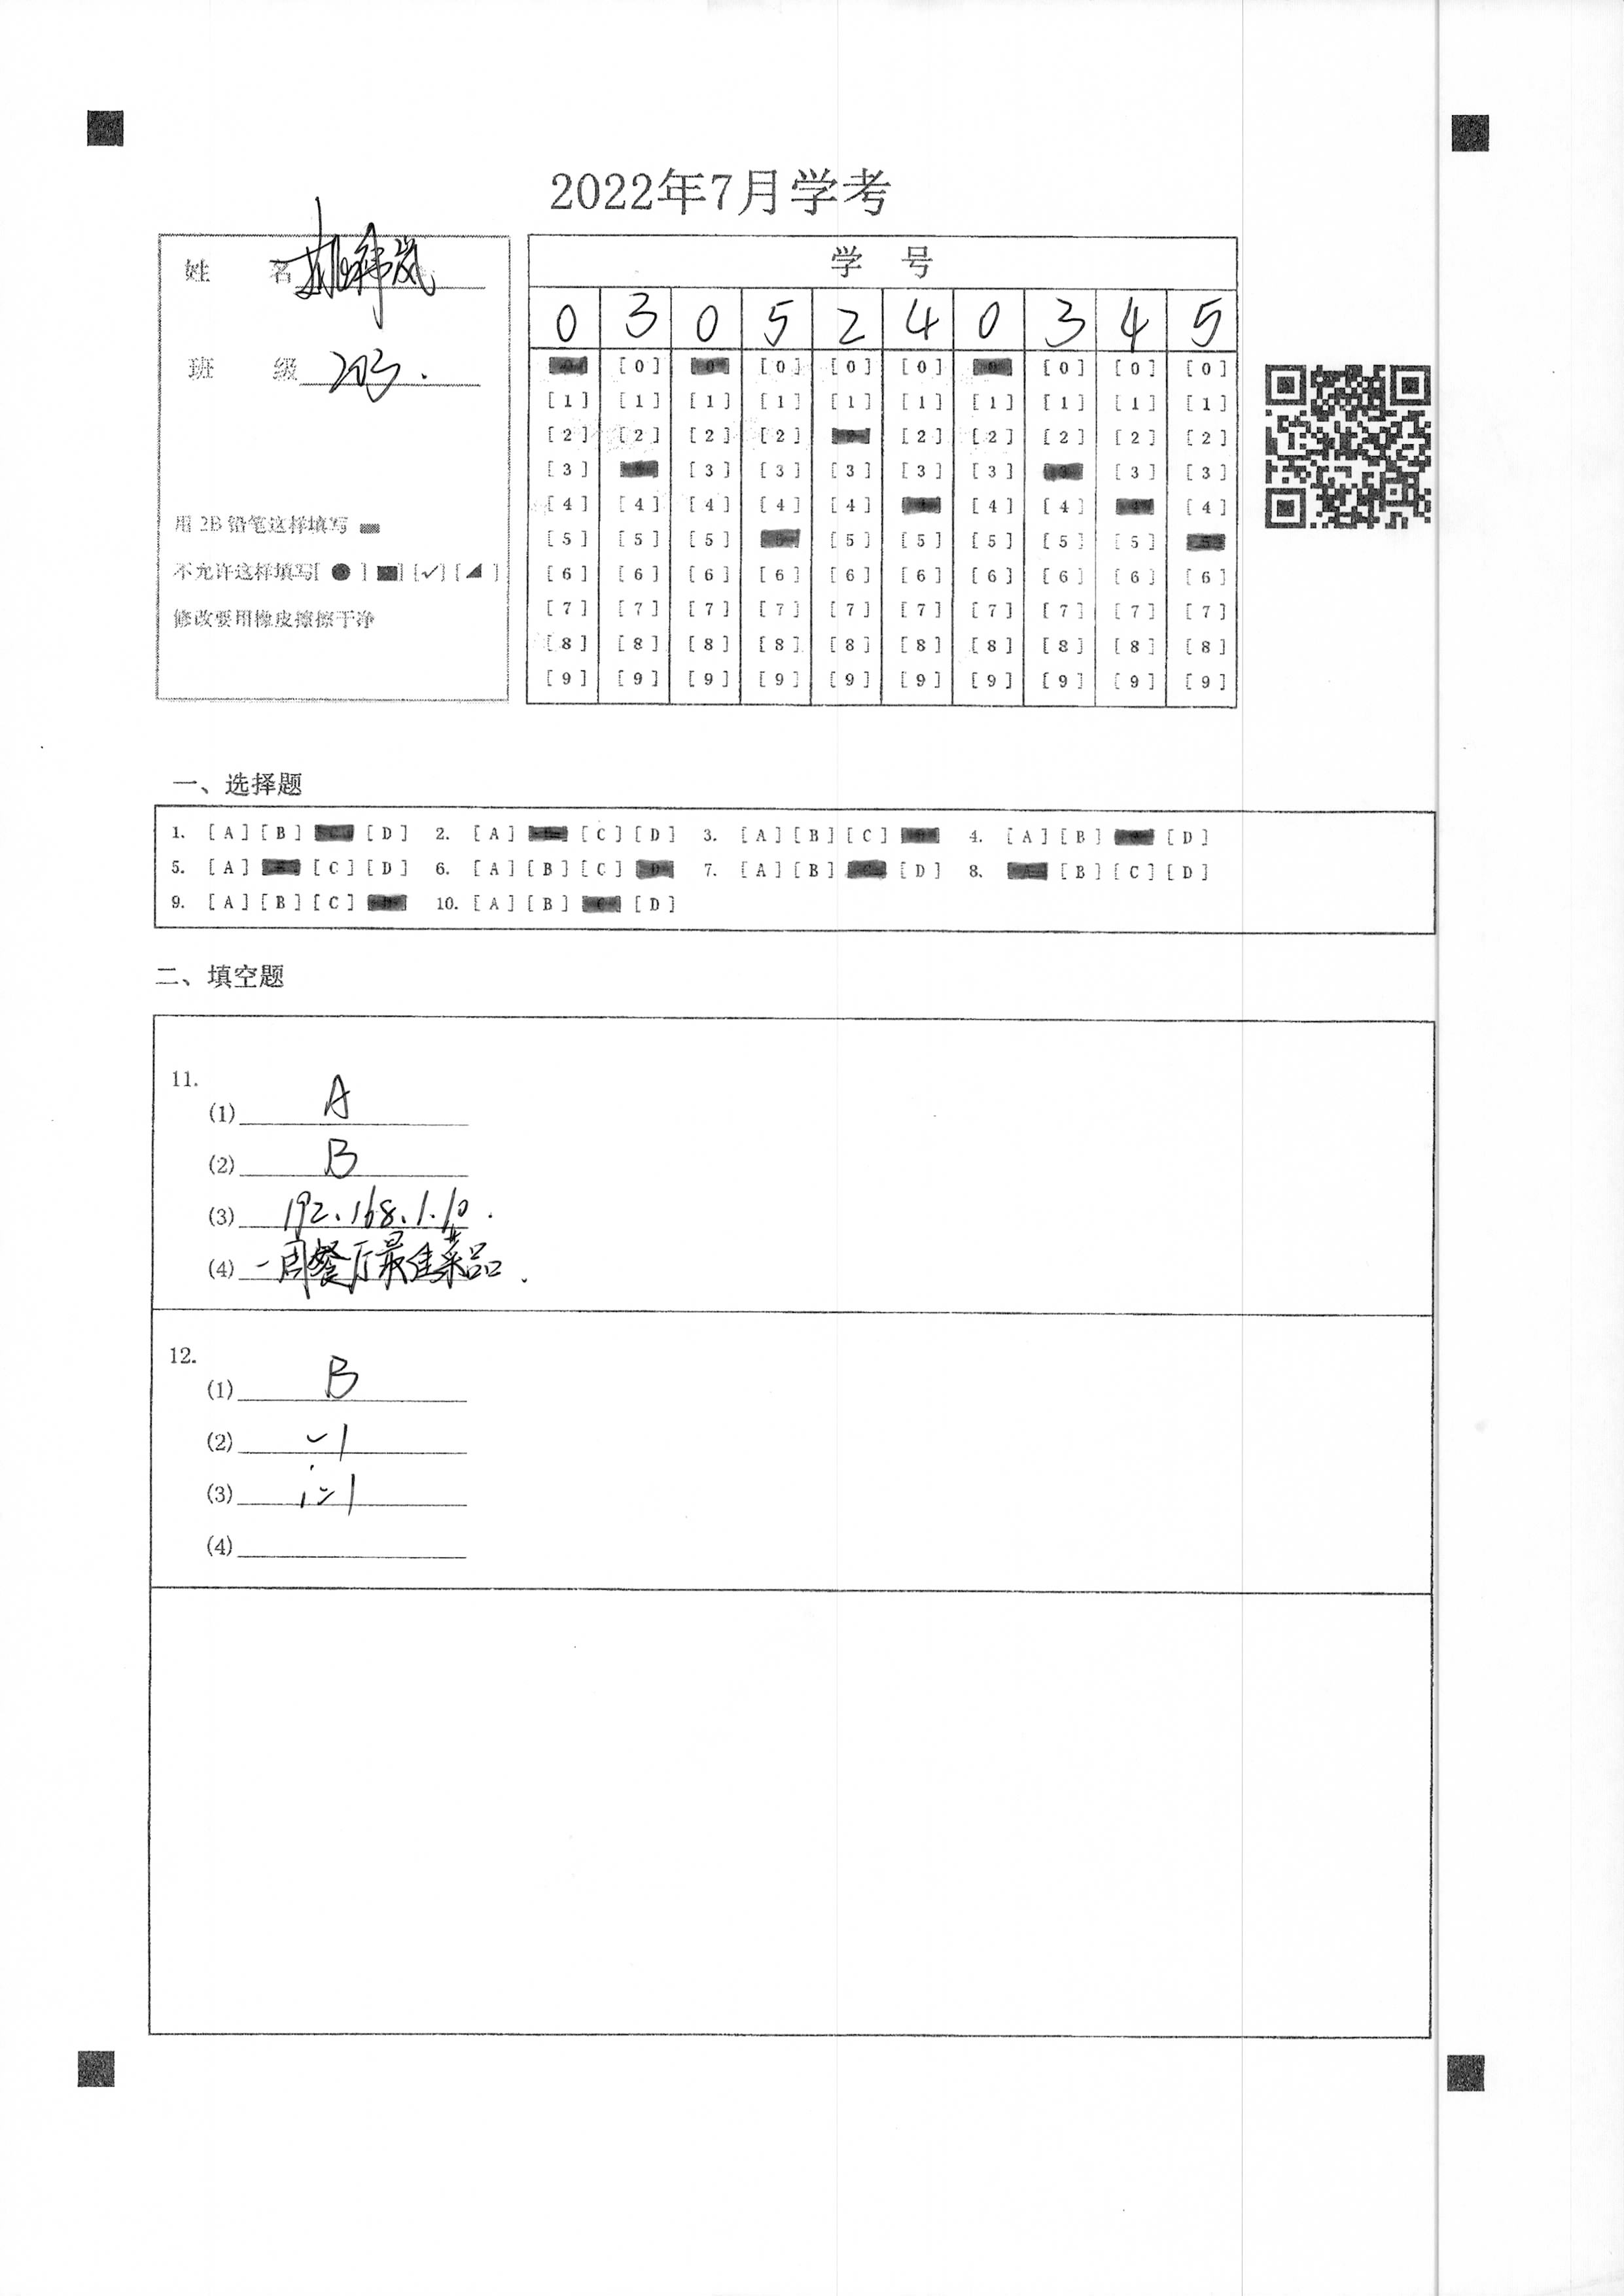 2022年7月学考
姓 名
班 级 203.
用 2B 铅笔这样填写
不允许这样填写[ ● ] [■] [✓] [◢ ]
修改要用橡皮擦擦干净
学 号
0 3 0 5 2 4 0 3 4 5
[0] [0] [0] [0] [0] [0] [0]
[1] [1] [1] [1] [1] [1] [1] [1] [1] [1]
[2] [2] [2] [2] [2] [2] [2] [2] [2]
[3] [3] [3] [3] [3] [3] [3] [3]
[4] [4] [4] [4] [4] [4] [4] [4]
[5] [5] [5] [5] [5] [5] [5] [5]
[6] [6] [6] [6] [6] [6] [6] [6] [6] [6]
[7] [7] [7] [7] [7] [7] [7] [7] [7] [7]
[8] [8] [8] [8] [8] [8] [8] [8] [8] [8]
[9] [9] [9] [9] [9] [9] [9] [9] [9] [9]
一、选择题
1. [A] [B] [D] 2. [A] [C] [D] 3. [A] [B] [C] 4. [A] [B] [D]
5. [A] [C] [D] 6. [A] [B] [C] 7. [A] [B] [D] 8. [B] [C] [D]
9. [A] [B] [C] 10. [A] [B] [D]
二、填空题
11.
(1) A
(2) B
(3) 192.168.1.10.
(4) 一周餐厅最佳菜品.
12.
(1) B
(2) -1
(3) i=1
(4)